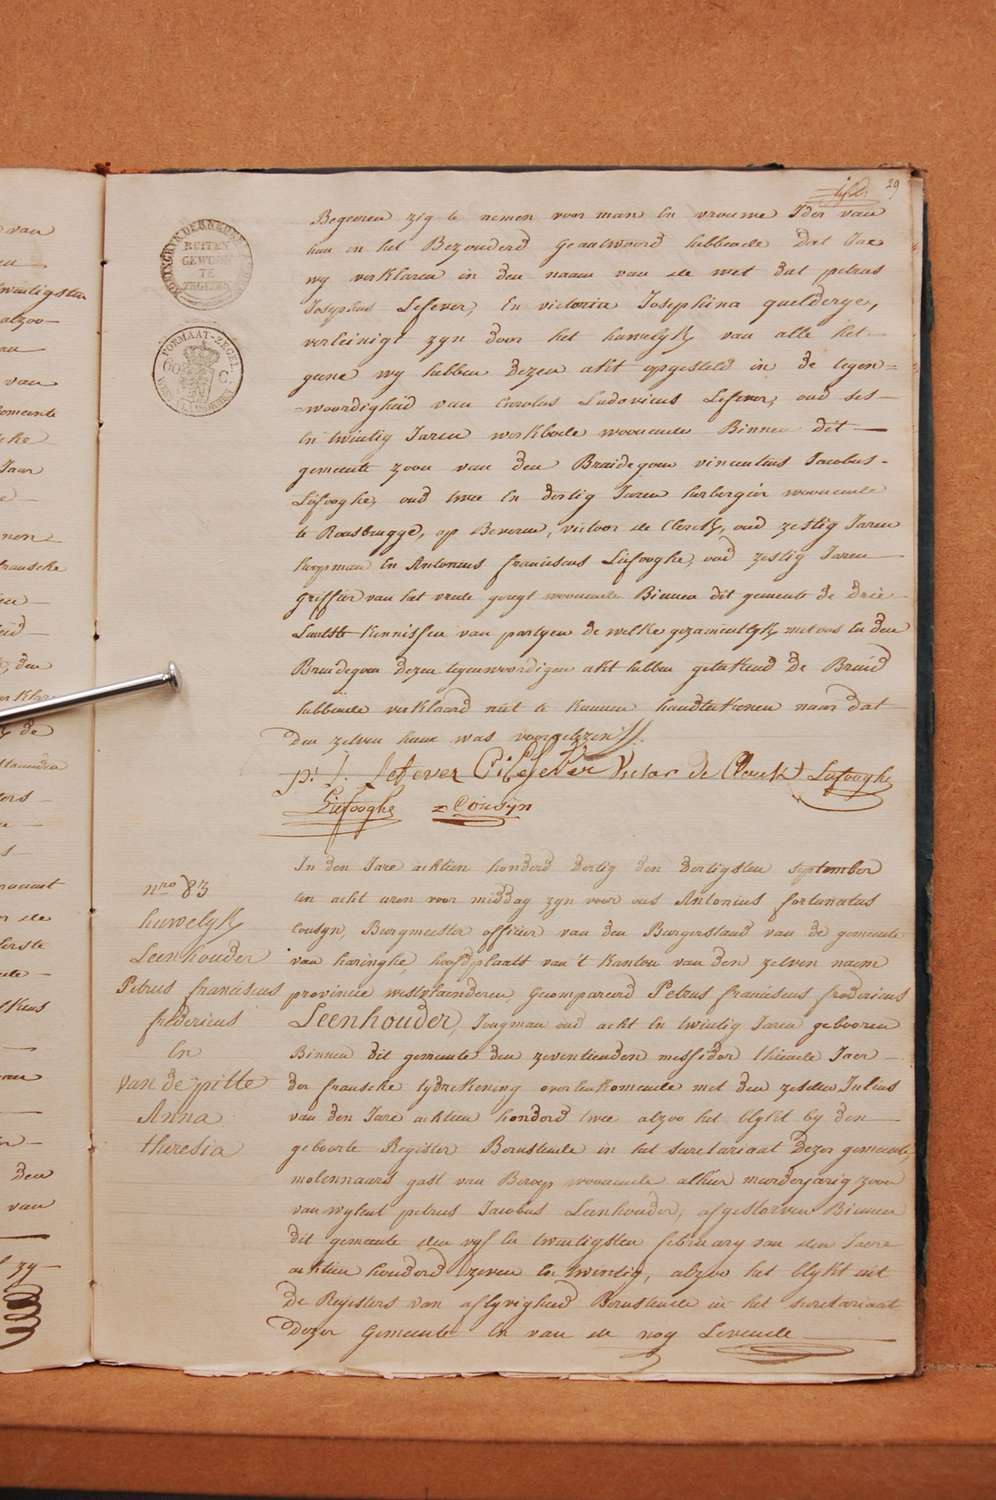 29
KONINGRYK DER NEDERLANDEN
BUITEN
GEWOON
TE
ZEGELEN
FORMAAT-ZEGEL
60 C.
WEST VLAANDEREN
Begeeren zig te nemen voor man En vrouwe Ider van
hun in het Bezonderd geantwoord hebbende Dat Jae
wy verklaren in den naem van de wet dat petrus
Josephus Lefever, En victoria Josephina quelderge,
vereinigt zyn door het huwelyk van alle het
geene wy hebben Dezen akt opgesteld in de tegen=
=woordigheid van Carolus Ludovicus Lefever, oud ses-
En twintig Jaren werkbode woonende Binnen dit
gemeente zoon van den Bruidegom vincentius Jacobus-
Liefooghe, oud twee En dertig Jaren herbergier woonende
te Rousbrugge, op Beveren, victor de Clerck, oud zestig Jaren
koopman En Antonius franciscus Liefooghe, oud zestig Jaren
Griffier van het vrede gerigt woonende Binnen dit gemeente de drie
Laatste kennissen van partyen de welke gezamentlyk met ons En den
Bruidegom dezen tegenwoordigen akt hebben geteekend De Bruid
hebbende verklaard niet te kunnen handteekenen naar dat
den zelven hun was voorgelezen
p: J. Lefever C: L Lefever Victor de Clerck Liefooghe
Liefooghe Cousyn
nro 83
huwelyk
Leenhouder
Petrus franciscus
fredericus
En
van de pitte
Anna
theresia
In den Jare achtien honderd dertig den dertigsten september
ten acht uren voor middag zyn voor ons Antonius fortunatus
Cousyn, Burgmeester officier van den Burgerstand van de gemeente
van haringhe hoofdplaats van 't kanton van den zelven naem
provincie westvlaenderen, Gecompareerd Petrus franciscus fredericus
Leenhouder, Jongman oud acht En twintig Jaren gebooren
Binnen dit gemeente den zeventienden messidor thiende Jaer
der fransche tydrekening overeenkomende met den zesden Julius
van den Jare achtien honderd twee alzoo het blykt by den
geboorte Register Berustende in het secretariaat dezer gemeente,
molennaars gast van Beroep woonende alhier meerderjarig zoon
van wylent petrus Jacobus Leenhouder, afgestorven Binnen
dit gemeente den vyf En twintigsten february van den Jaere
achtien honderd zeven En twintig, alzoo het blykt uit
de Registers van aflyvigheid Berustende in het secretariaat
Dezer Gemeente En van de nog Levende